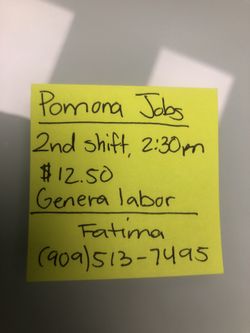 Pomona Jobs
2nd shift, 2:30pm
$12.50
Genera labor
Fatima
(909)513-7495